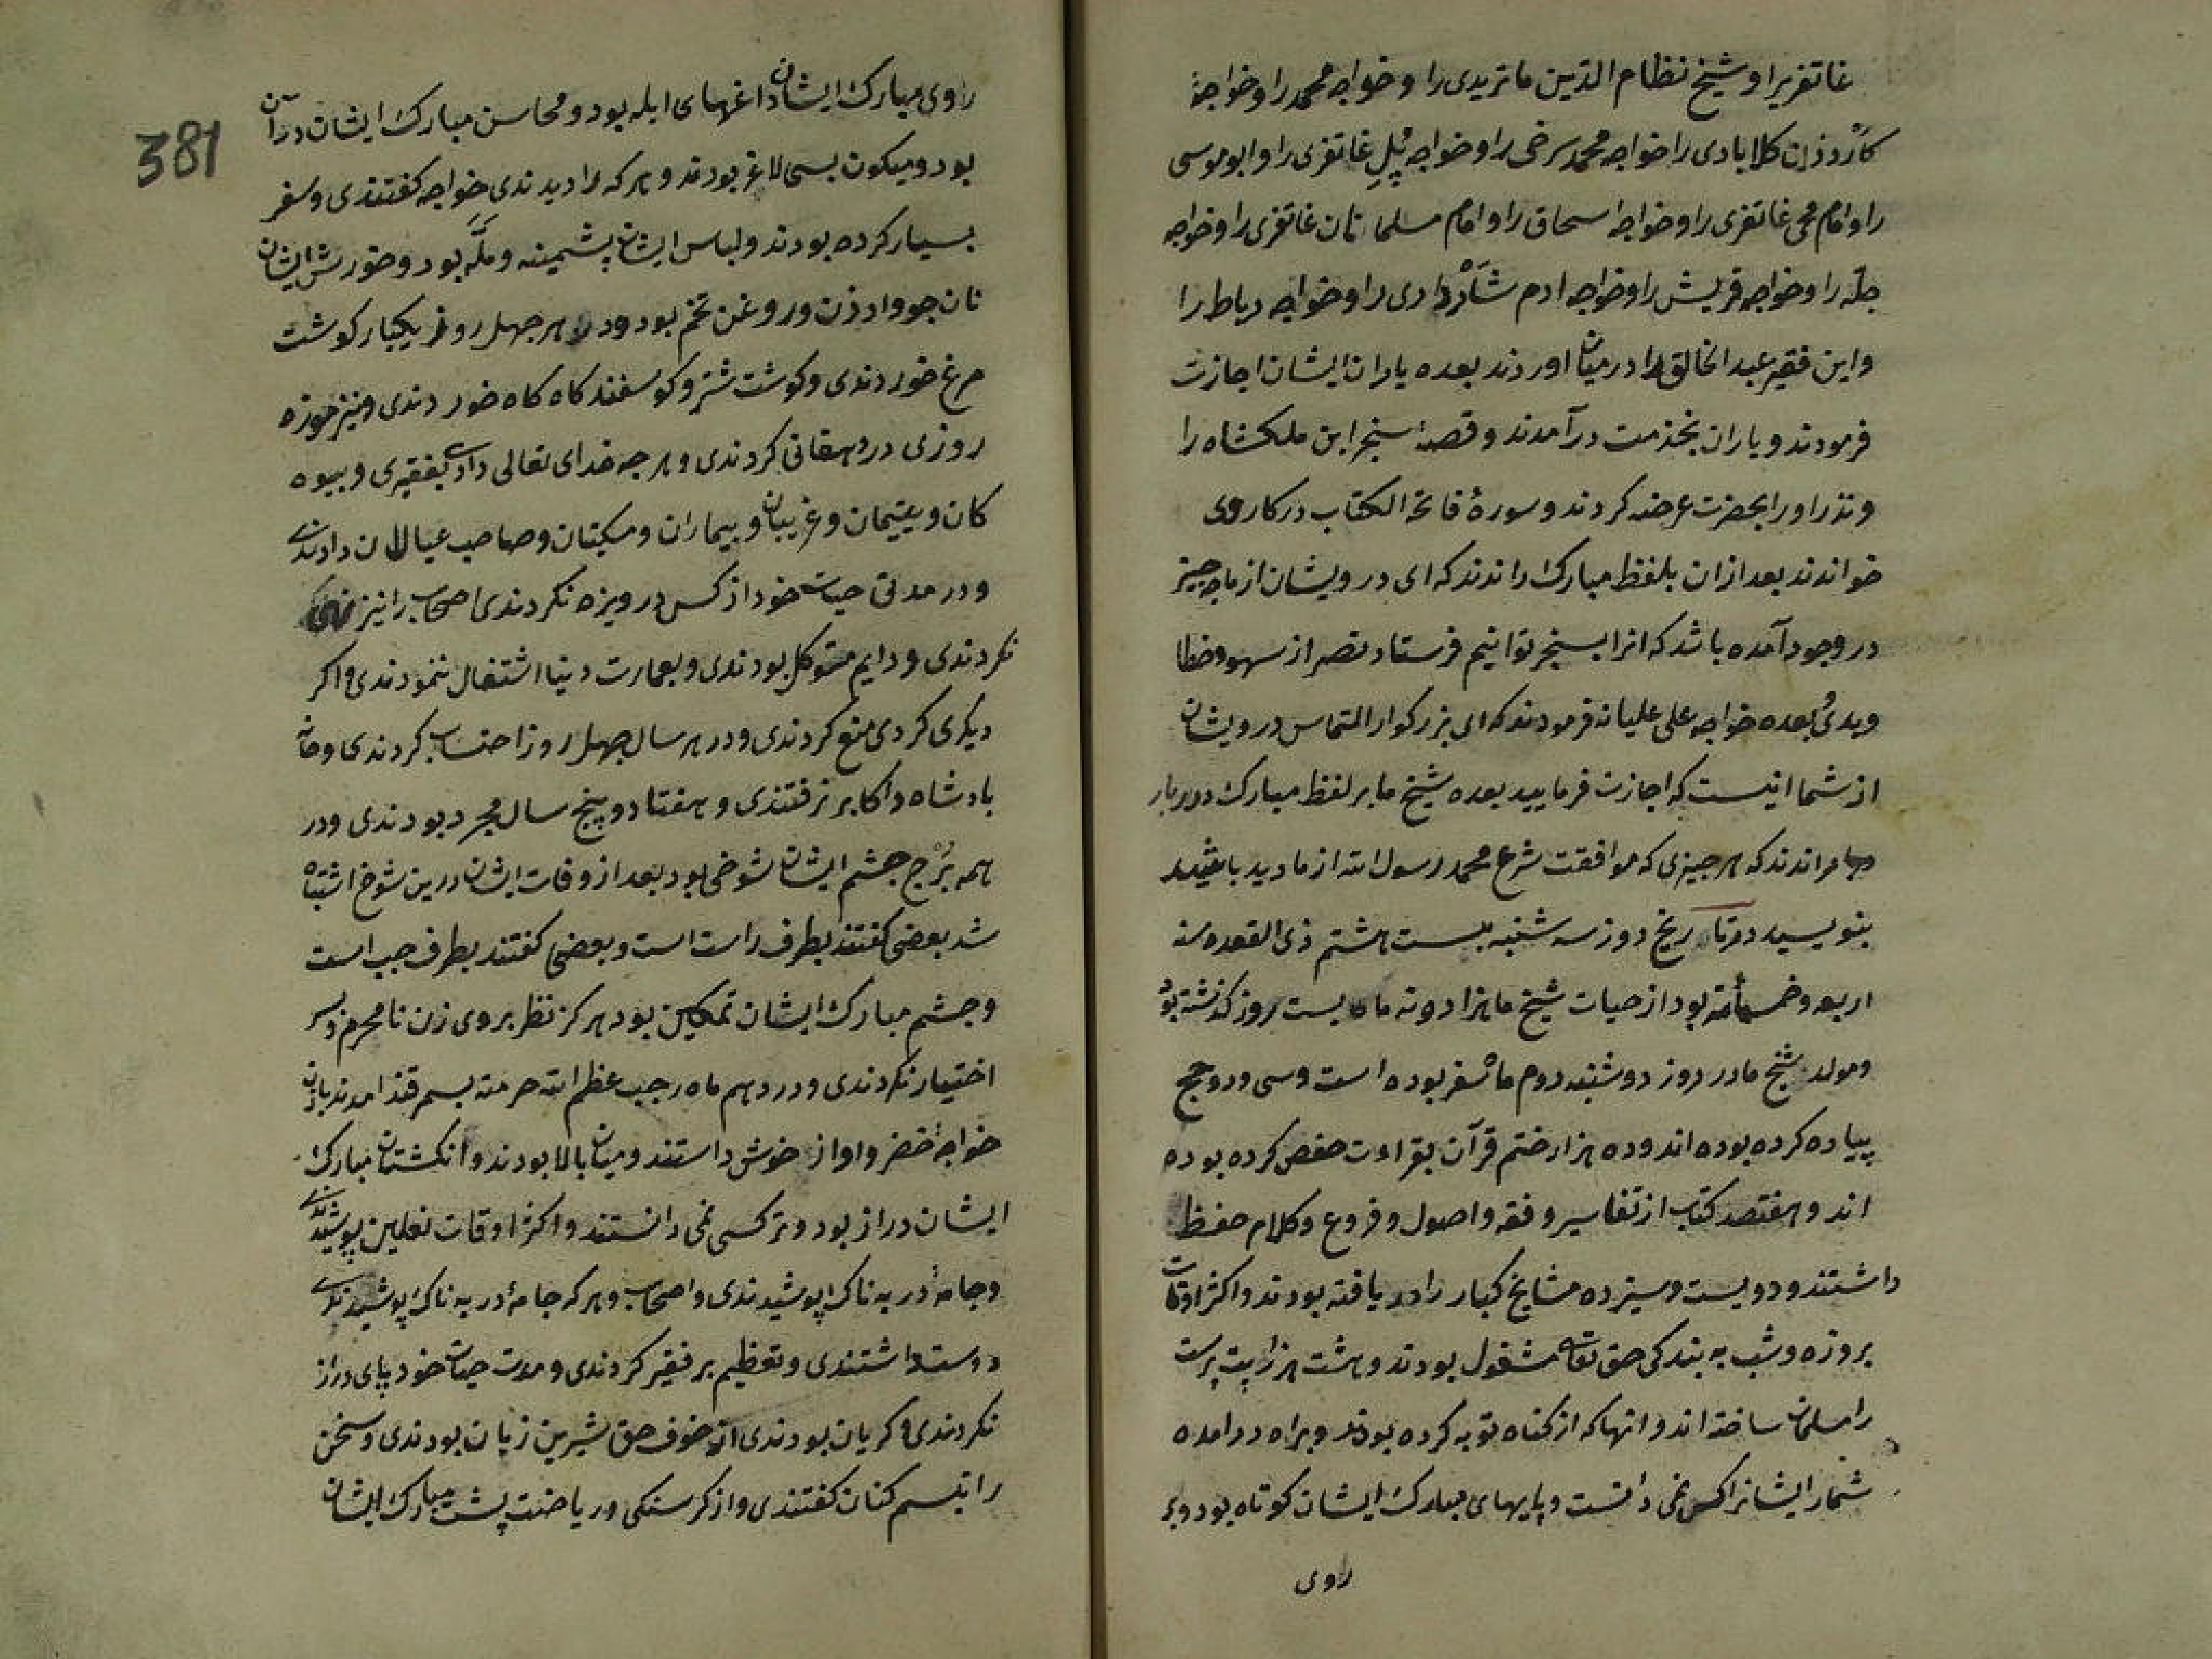 غاتفریرا و شیخ نظام الدین ماتریدی را و خواجه محمد را و خواجهٔ
کازروزن کلابادی را خواجه محمد سرخی را و خواجه پل غاتفری را و ابو موسی
را و امام محی غاتفری را و خواجه اسحاق را و امام مسلمانان غاتفری را و خواجه
جلّه را و خواجه قریش را و خواجه ادم شاذداری را و خواجه رباط را
و این فقیر عبد الخالق را درمیان اوردند بعده یاران ایشان اجازت
فرمودند و یاران بخدمت درآمدند و قصهٔ سنجر ابن ملکشاه را
و نذر او را بحضرت عرضه کردند و سورهٔ فاتحة الکتاب در کار وی
خواندند بعد ازان بلفظ مبارک راندند که ای درویشان از ما چه چیز
در وجود آمده باشد که انرا بسنجر توانیم فرستاد نصر از سهو و خطا
و بدیٔ بعده خواجه علی علیانه فرمودند که ای بزرکوار التماس درویشان
از شما اینست که اجازت فرمایید بعده شیخ ما بر لفظ مبارک دربار
راندند که هر جیزی که موافقت شرع محمد رسول الله از ما دید باشید
بنویسید در تاریخ روز سه شنبه بیست هشتم ذی القعده سنه
اربع و خمسمأته بود از حیات شیخ ما هزار و نه ماه بیست روز کذشته بود
و مولد شیخ ما در روز دوشنبه دوم ماه صفر بوده است و سی و دو حج
پیاده کرده بوده اند و ده هزار ختم قرآن بقراءت حفص کرده بوده
اند و هفتصد کتاب از تفاسیر و فقه و اصول و فروع و کلام حفظ
داشتند و دویست و سیزده مشایخ کبار را در یافته بودند و اکثر اوقات
بروزه و شب به بندکی حق تعالی مشغول بودند و هشت هزار بت پرست
را مسلمان ساخته اند و انها که از کناه توبه کرده بودند و براه در امده
شمار ایشانرا کس نمی دانست و پایهای مبارک ایشان کوتاه بود و بر
راوی
راوی مبارک ایشان داغهای ابله بود و محاسن مبارک ایشان درآن
بود و میکون بسی لاغر بودند و هر که را دیدندی خواجه کفتندی و سفر
بسیار کرده بودند و لباس ایشان پشمینه و ملّه بود و خورش ایشان
نان جو و ارزن و روغن تخم بود و در هر جهل روز یکبار کوشت
مرغ خوردندی و کوشت شتر و کوسفند کاه کاه خوردندی و نیز هوزه
روزی در دهقانی کردندی و هر چه خدای تعالی دادی بفقیری و بیوه
کان و یتیمان و غریبان و بیماران و مسکینان و صاحب عیالان دادندی
و در مدتی حیات خود از کس درویزه نکردندی اصحاب را نیز
نکردندی و دایم متوکل بودندی و بعمارت دنیا اشتغال ننمودندی و اکر
دیکری کردی منع کردندی و در هر سال جهل روز احتساب کردندی و خانه
بادشاه و اکابر نرفتندی و هفتاد و پنج سال مجرد بودندی و در
همه برج جشم ایشان شوخی بود بعد از وفات ایشان درین شوخ اشتباه
شد بعضی کفتند بطرف راست است و بعضی کفتند بطرف جب است
و جشم مبارک ایشان نمکین بود هر کز نظر بروی زن نامحرم و بسر
اختیار نکردندی و در دهم ماه رجب عظم الله حرمته بسمرقند امدند با زن
خواجهٔ خضر و اواز خوش داشتند و میان بالا بودند و انکشتان مبارک
ایشان دراز بود و ترکسی نمی دانستند و اکثر اوقات نعلین پوشیدندی
و جامهٔ دربه ناک پوشیدندی و اصحاب و هر که جامهٔ دربه ناک پوشیدندی
دوست داشتندی و تعظیم بر فقیر کردندی و مدت حیات خود پای دراز
نکردندی و کریان بودندی از خوف حق شیرین زبان بودندی و سخن
را تبسم کنان کفتندی و از کرسنکی و ریاضت پشت مبارک ایشان
381